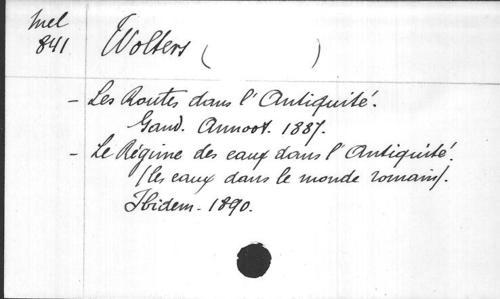 Mel
841
Wolters ( )
- Les Routes dans l'Antiquité.
Gand. Annoot. 1887.
- Le Régime des eaux dans l'Antiquité.
(les eaux dans le monde romain).
Ibidem - 1890.